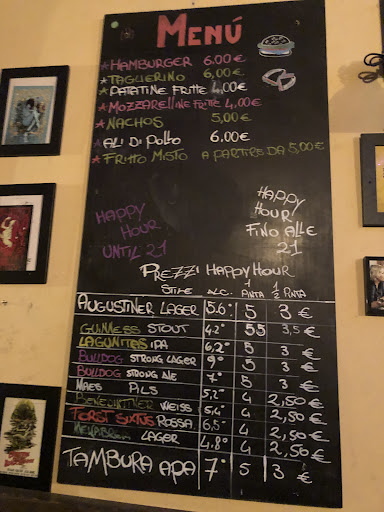 Menú
*HAMBURGER 6.00€
*TAGLIERINO 6,00€
*PATATINE FRITTE 4,00€
*MOZZARELLINE FRITTE 4,00€
*NACHOS 5,00€
*ALI DI POLLO 6.00€
*FRITTO MISTO A PARTIRE DA 5,00€
HAPPY HOUR UNTIL 21
HAPPY HOUR FINO ALLE 21
PREZZI HAPPY HOUR
STILE ALC. 1 PINTA 1/2 PINTA
AUGUSTINER LAGER 5.6° 5 3€
GUINNESS STOUT 4,2° 5,5 3,5€
LAGUNITAS IPA 6,2° 5 3€
BULLDOG STRONG LAGER 9° 5 3€
BULLDOG STRONG ALE 7° 5 3€
MAES PILS 5,2° 4 2,50€
BENEDIKTINER WEISS 5,4° 4 2,50€
FORST SIXTUS ROSSA 6,5° 4 2,50€
LAGER 4,8° 4 2,50€
TAMBURA APA 7° 5 3€